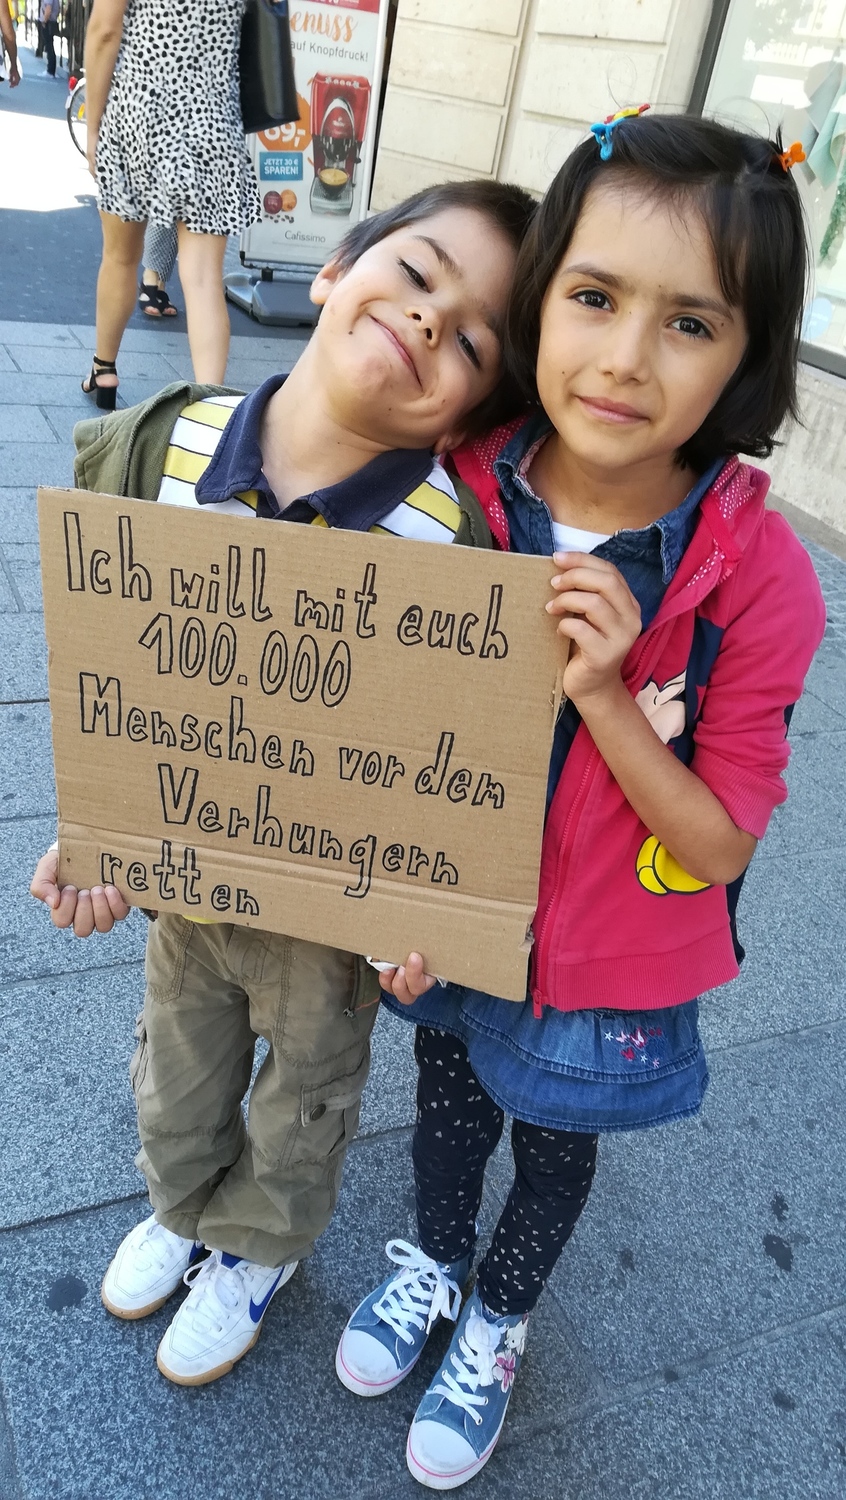 Genuss
auf Knopfdruck!
69,-
JETZT 30 €
SPAREN!
Cafissimo
Ich will mit euch
100.000
Menschen vor dem
Verhungern
retten